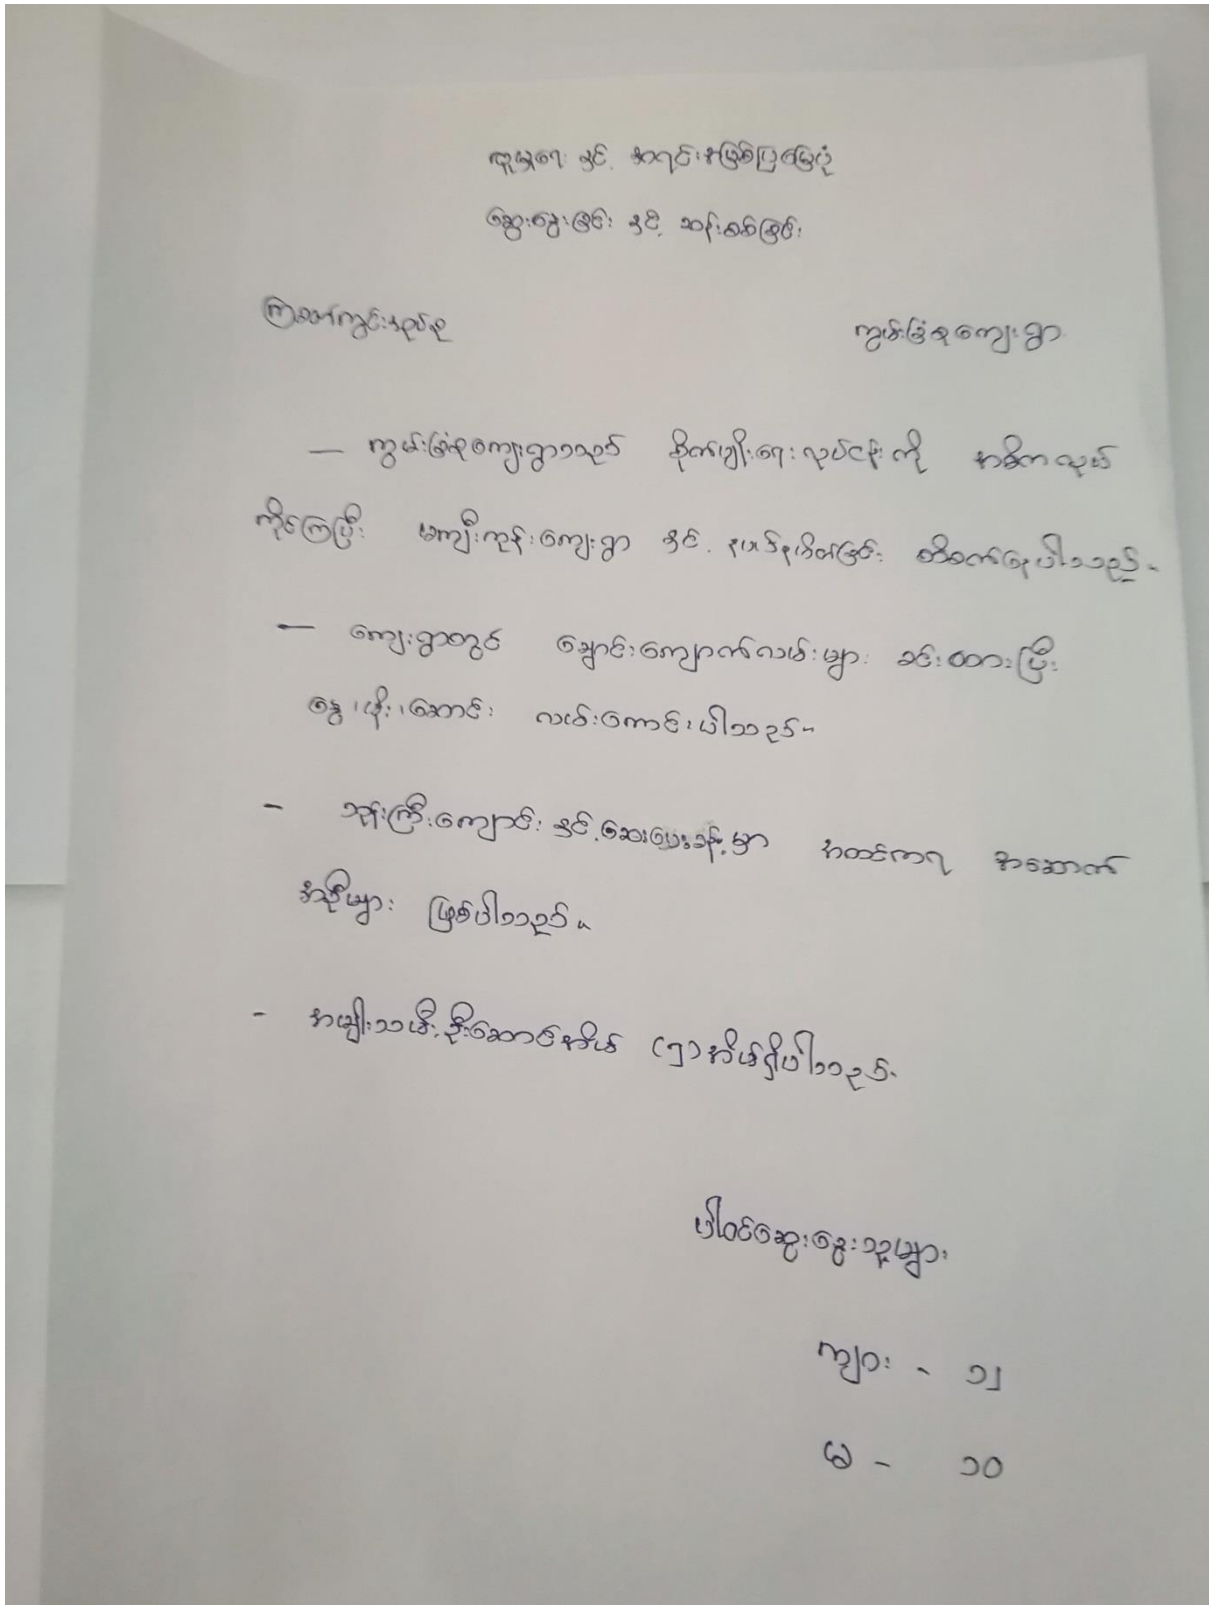 လူမှုရေး နှင့် အရင်းအမြစ်ပြမြေပုံ
ဆွေးနွေးခြင်း နှင့် ဆန်းစစ်ခြင်း
ကြခတ်ကွင်းအုပ်စု
ကွမ်းခြံစုကျေးရွာ
— ကွမ်းခြံစုကျေးရွာသည် စိုက်ပျိုးရေးလုပ်ငန်းကို အဓိကလုပ်
ကိုင်ကြပြီး မကျီးကုန်းကျေးရွာ နှင့် နယ်နမိတ်ခြင်း ထိစက်နေပါသည်။
— ကျေးရွာတွင် ချောင်းကျောက်လမ်းများ ခင်းထားပြီး
နွေ၊မိုး၊ဆောင်း လမ်းကောင်းပါသည်။
- ဘုန်းကြီးကျောင်း နှင့်ဆေးပေးခန်းမှာ အထင်ကရ အဆောက်
အဦများ ဖြစ်ပါသည်။
- အမျိုးသမီးဦးဆောင်အိမ် (၅)အိမ်ရှိပါသည်။
ပါဝင်ဆွေးနွေးသူများ
ကျား - ၁၂
မ - ၁၀